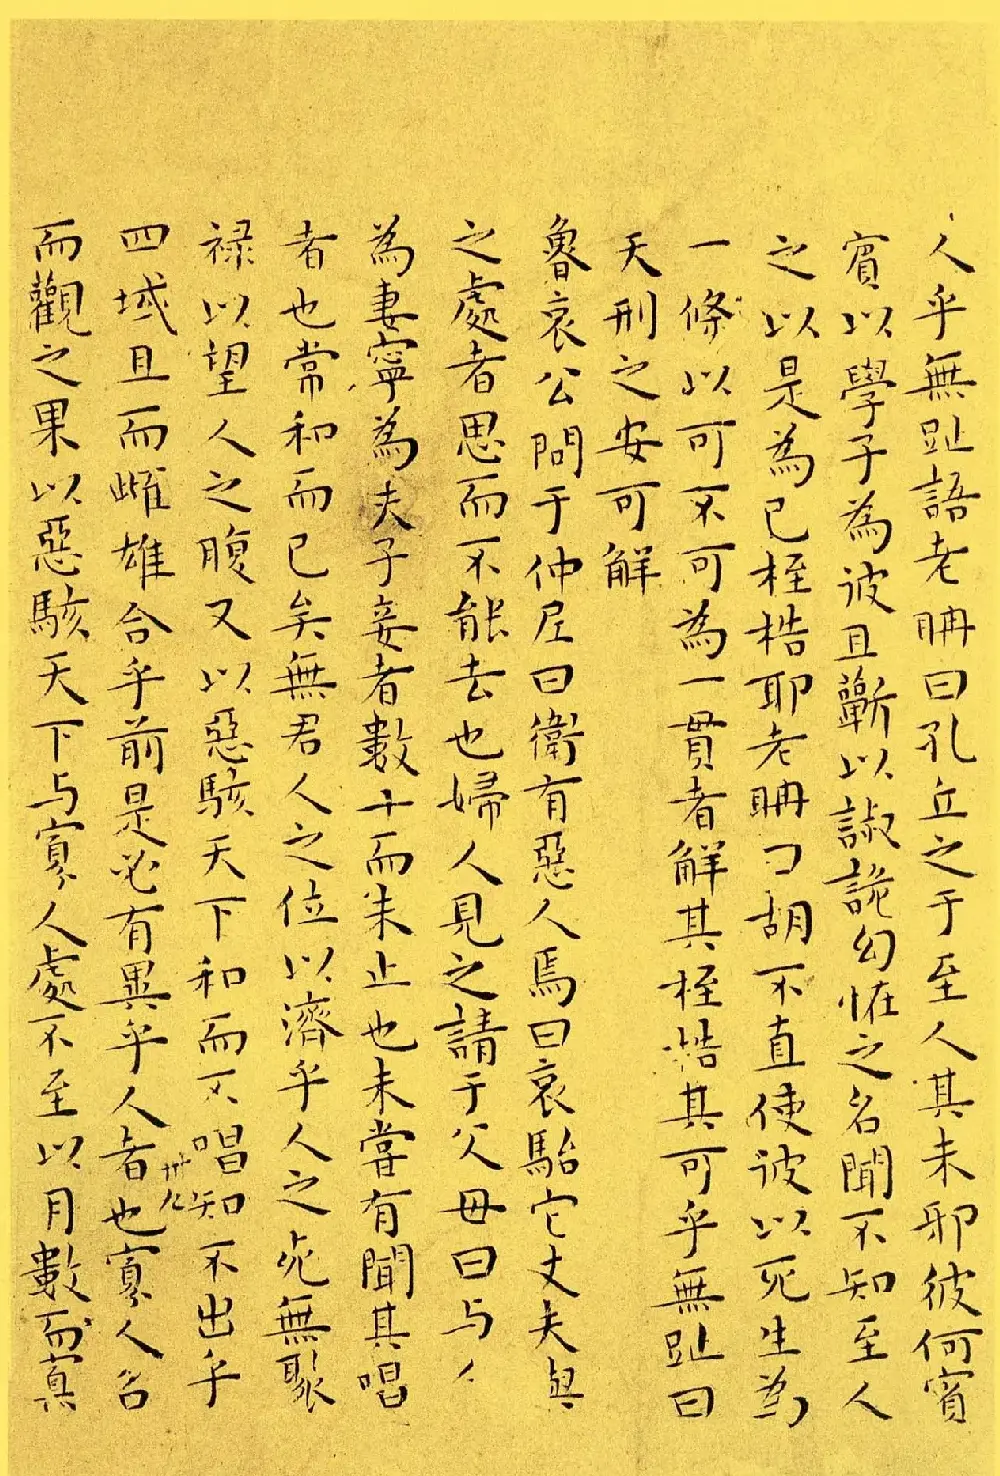 人乎無趾語老聃曰孔丘之于至人其未邪彼何賓
賓以學子為彼且蘄以諔詭幻怪之名聞不知至人
之以是為己桎梏耶老聃曰胡不直使彼以死生為
一條以可不可為一貫者解其桎梏其可乎無趾曰
天刑之安可解
魯哀公問于仲尼曰衛有惡人焉曰哀駘它丈夫與
之處者思而不能去也婦人見之請于父母曰与人
為妻寧為夫子妾者數十而未止也未嘗有聞其唱
者也常和而已矣無君人之位以濟乎人之死無聚
禄以望人之腹又以惡駭天下和而不唱知不出乎
四域且而雌雄合乎前是必有異乎人者也寡人召
而觀之果以惡駭天下与寡人處不至以月數而寡